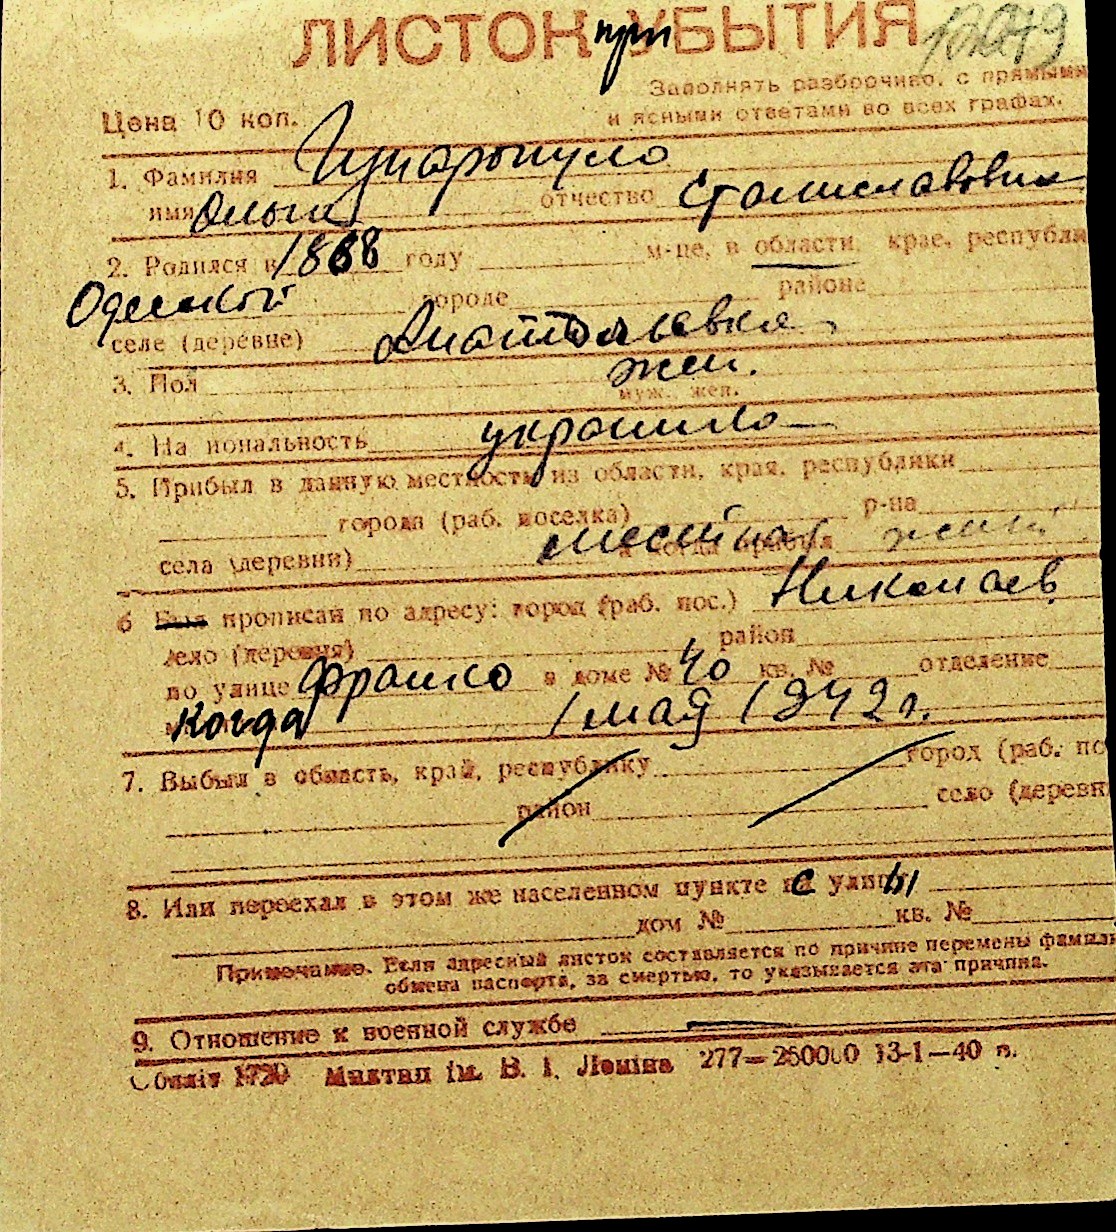 ЛИСТОК при УБЫТИЯ
Заполнять разборчиво, с прямыми
и ясными ответами во всех графах.
Цена 10 коп.
1. Фамилия
имя Ольга отчество Станиславовна
2. Родился в 1868 году м-це, в области крае, республи
Одесской городе районе
селе (деревне) Анатольевка
3. Пол жен.
муж. жен.
4. Национальность украинка
5. Прибыл в данную местность из области, края, республики
города (раб. поселка) р-на
села (деревни) и когда прибыл местная жит
6 Был прописан по адресу: город (раб. пос.) Николаев
село (деревня) район
по улице Франко в доме № 40 кв. № отделение
Когда 1 мая 1942 г.
7. Выбыл в область, край, республику город (раб. по
район село (деревн
8. Или переехал в этом же населенном пункте с улицы
дом № кв. №
Примечание. Если адресный листок составляется по причине перемены фамили
обмена паспорта, за смертью, то указывается эта причина.
9. Отношение к военной службе
Обліт 1720 Миктип ім. В. І. Леніна 277—250000 13-1—40 р.